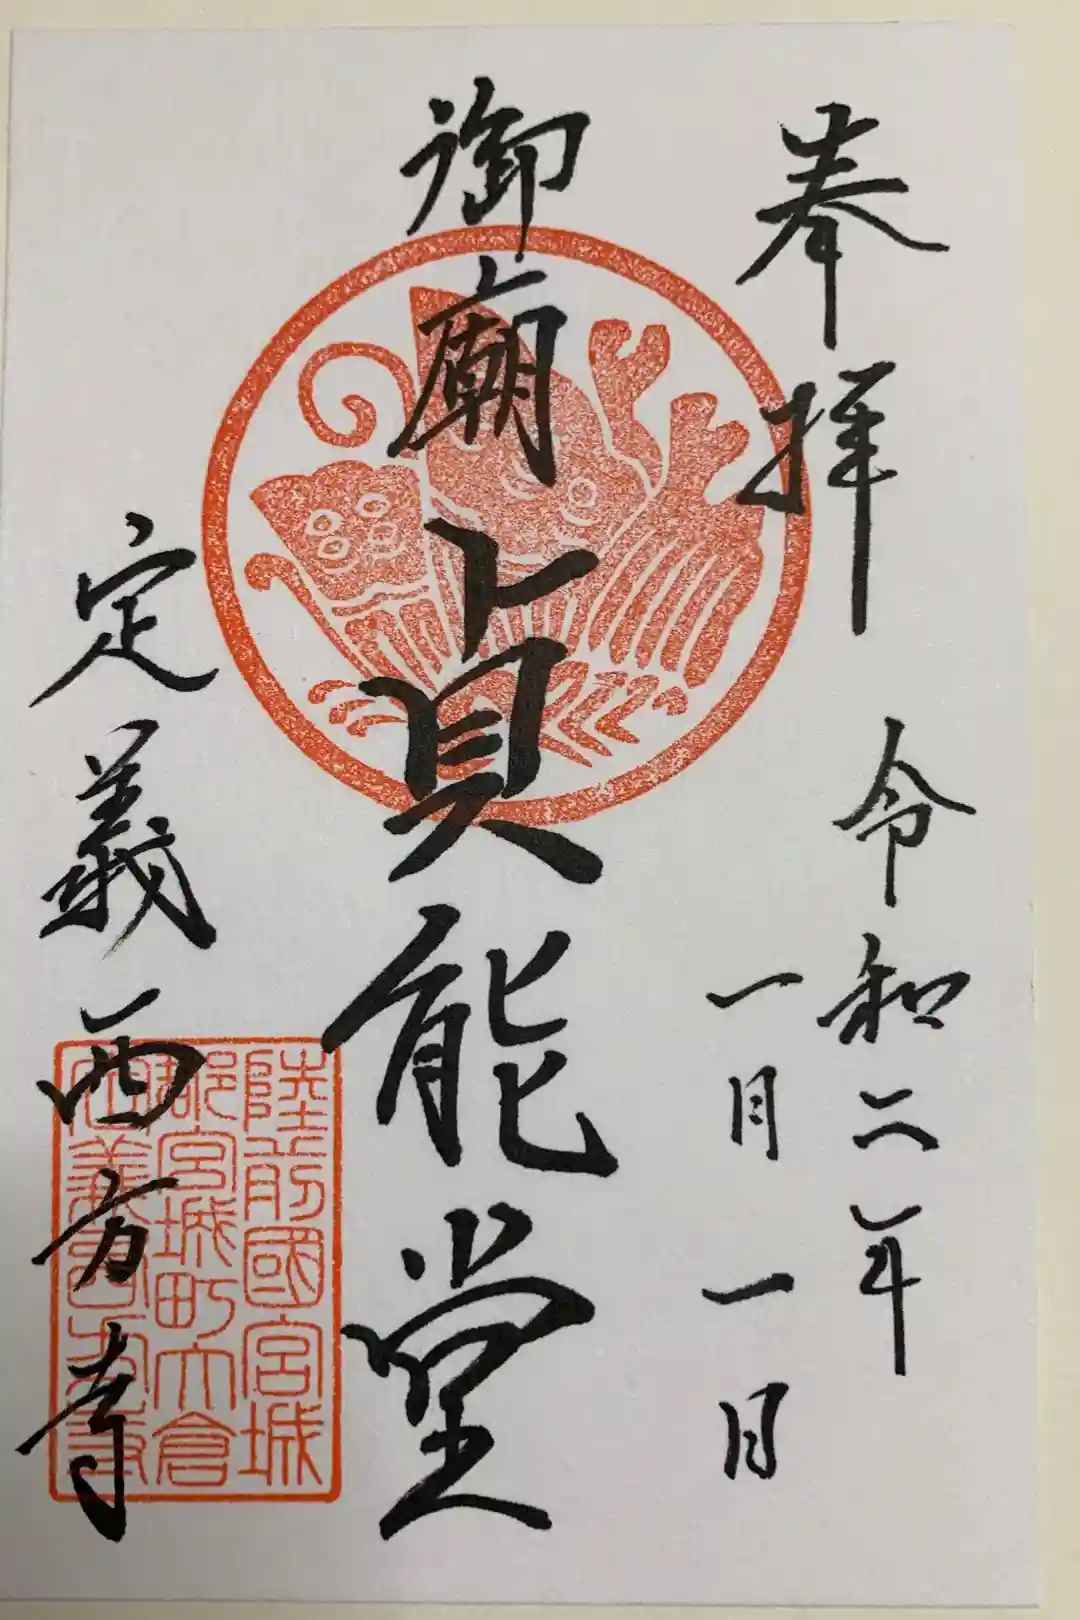 奉拝
令和二年
一月一日
御廟貞能堂
定義西方寺
陸前國宮城
郡宮城町大倉
定義西方寺